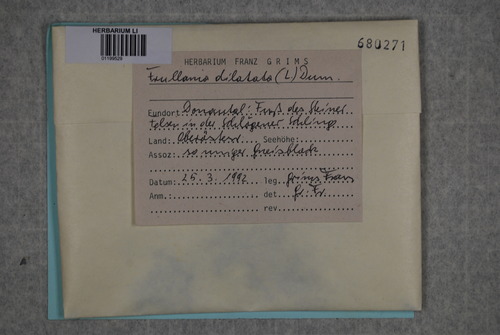 HERBARIUM LI
680271
HERBARIUM FRANZ GRIMS
Frullania dilatata (L.) Dum.
Fundort: Donautal: Fuß des Steiner
Felsen in der Schlögener Schlinge
Land: Oberösterr. Seehöhe:
Assoz: Gneisblock
Datum: 25. 3. 1992 leg. Grims Franz
Anm.: det. Gr. Fr.
rev.